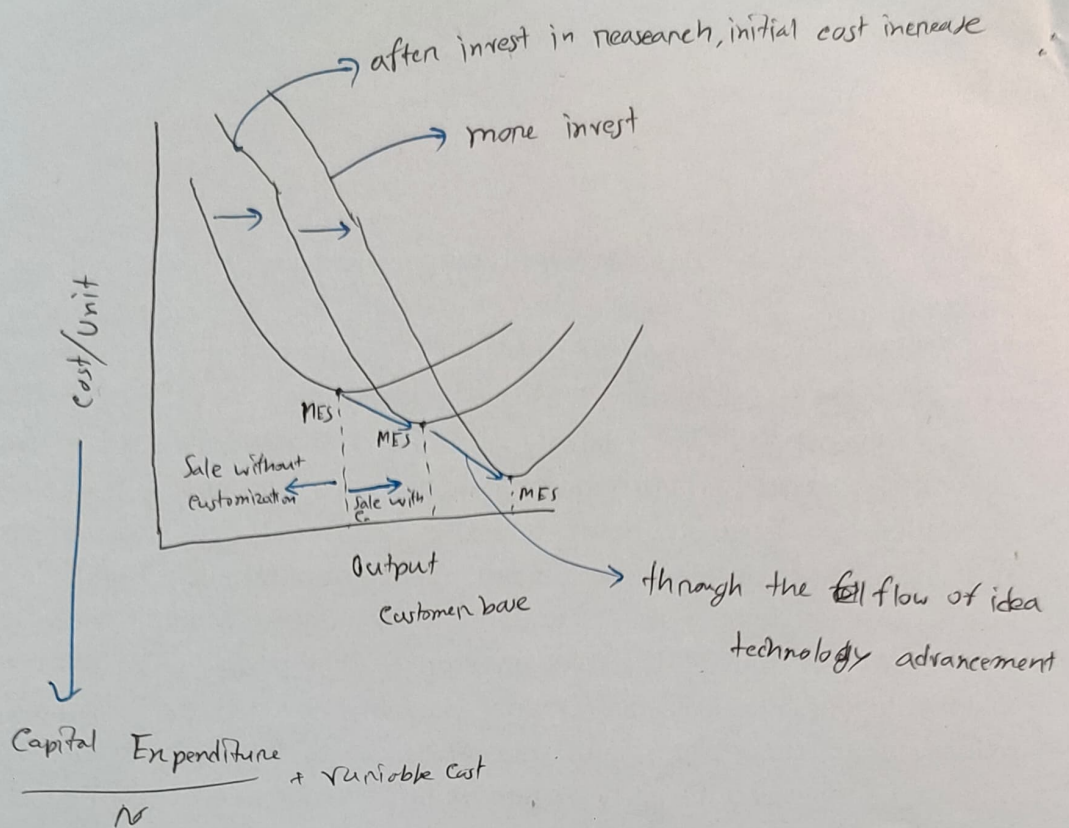 after invest in reasearch, initial cost increase
more invest
Cost/Unit
MES
MES
MES
Sale without
customization
Sale with
C.
Output
Customer base
through the flow of idea
technology advancement
Capital Expenditure
+ variable cost
N